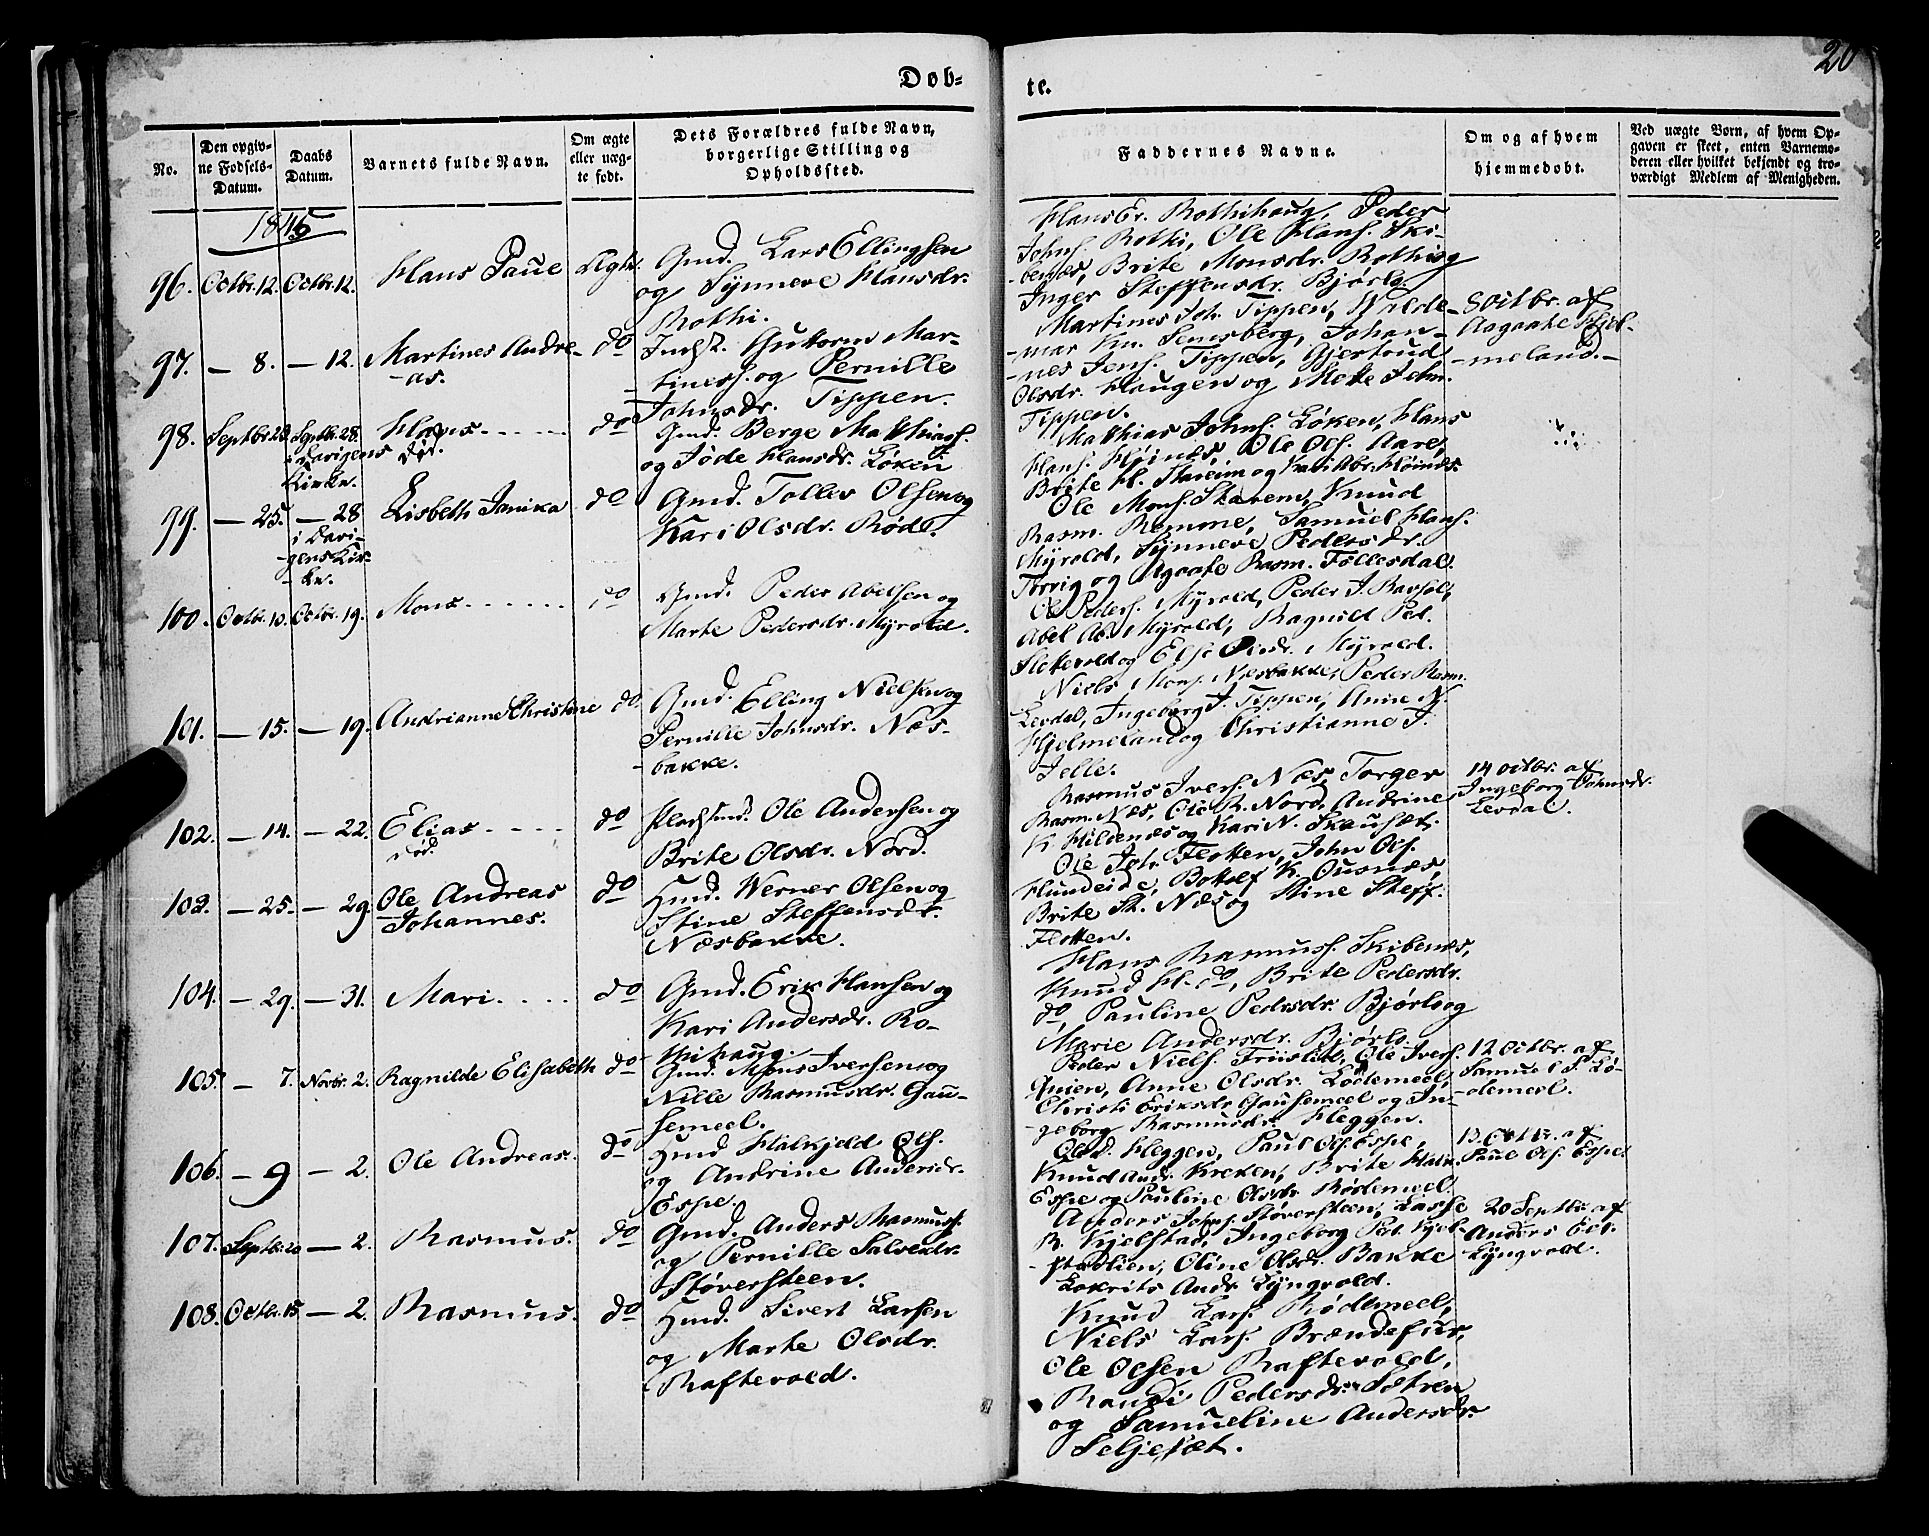 Døb-
te.
20
No.
Den opgiv-
ne Fødsels-
Datum.
Daabs
Datum.
Barnets fulde Navn.
Om ægte
eller uæg-
te født.
Dets Forældres fulde Navn,
borgerlige Stilling og
Opholdssted.
Faddernes Navne.
Om og af hvem
hjemmedøbt.
Ved uægte Børn, af hvem Op-
gaven er skeet, enten Barnemo-
deren eller hvilket bekjendt og tro-
værdigt Medlem af Menigheden.
1845
96. Octbr. 12. Octbr. 12. Hans Paul Ægte
Gmd. Lars Ellingsen
og Synneve Hansdr.
Rothi.
Hans Er. Rothihaug, Peder
Johns. Rothi, Ole Hans. Ski-
benæs, Brite Monsdr. Rothi og
Inger Steffensdr. Bjørlo.
97. — 8. — 12. Martines Andre-
-as. do
Guttorm Mar-
tines. og Pernille
Johnsdr. Tippen.
Martines Joh. Tippen,
-nes Jens. Tippen, Gjertrud
Olsdr. Haugen og Mette John.
Tippen.
8 Octbr. af
Aagaathe Hjel-
-meland.-
98. Septbr. 23. Septbr. 28. Hans - - - - - do
i Davigens
Kirke.
Død.
Gmd. Berge Matthias.
og Jøde Hansdr. Løken
Mathias Johns. Løken, Hans
Hans. Høinæs, Ole Ols. Aare,
Brite H. Stareim og Kari Abr. Høinæs.
99. — 25. — 28 Lisbeth Janika do
i Davi-
-gens Kir-
-ke.
Gmd. Toller Olsen og
Kari Olsdr. Røde.
Ole Mons. Skaren, Knud
Rasm. Romme, Samuel Hans.
Myrold, Synneve Pedersdr.
Torvig og Agaate Rasm. Follesdal.
100. Octbr. 10. Octbr. 19. Mons - - - - - - do
Gmd. Peder Abelsen og
Marte Pedersdr. Myrold.
Ole Peders. Myrold, Peder J.
Abel Ab. Myrold, Ragnild Ped.
og Else Myrold.
101. — 15. — 19. Andrianne Christine do
Gmd. Elling Nielsen og
Pernille Johnsdr. Næs-
-bakke.
Niels Mons. Næsbakke, Peder Rasm.
Levdal, Ingeborg J. Tippen, Anne N.
Hjelmeland og Christianne J.
Jelle.
102. — 14. — 22. Elias - - - - do
Død.
Ole Andersen og
Brite Olsdr. Nord.
Rasmus Ivers. Næs, Torger
Rasm. Næs, Ole R. Nord, Andrine
K. Hildenæs og Kari N. Skausæt.
14 Octbr. af
Ingeborg Johnsdr.
Levdal.
103. — 25. — 29. Ole Andreas
Johannes. do
Hmd. Werner Olsen og
Stine Steffensdr.
Næsbakke.
Ole Joh. Flotten, John Ols.
Hundeide, Bottolf K. Ousnæs,
Brite St. Næs og Stine Steff.
Flotten.
104. — 29. — 31. Mari. - - - - do
Gmd. Erik Hansen og
Kari Andersdr. Ro-
thihaug.
Hans Rasmuss. Skibenæs,
Knud H. do, Brite Pedersdr.
do, Pauline Pedersdr. Bjørlo og
Marie Andersdr. Bjørlo.
105. — 7. Novbr. 2. Ragnilde Elisabeth do
Gmd. Mons Iversen og
Nille Rasmusdr. Gau-
semeel.
Peder Niels. Friislid, Ole Ivers.
Anne Olsdr. Lødemeel,
Christi Eriksdr. Gausemeel og In-
-geborg Rasmusdr. Heggen.
12 Octbr. af
Samuel J. Lø-
-demeel.
106. — 9 — 2. Ole Andreas. do
Hmd Halkjeld Ols.
og Andrine Andersdr.
Espe.
Heggen, Paul Ols. Espe,
Knud And. Kreken, Brite Halk.
Espe og Pauline Olsdr. Rødemeel.
13. Octbr. af
Paul Ols. Espe
107. Septbr. 20 — 2. Rasmus. do
Gmd. Anders Rasmuss.
og Pernille Salvesdr.
Støversteen.
Anders Johns. Støversteen, Lasse
R. Hjelstad, Ingeborg Ped. Hjel-
stadlien, Oline Olsdr. Bakke
Lokrits Andr. Lyngvold.
20 Septbr. af
Anders
Lyngvold.
108. Octbr. 15 — 2. Rasmus. do
Hmd. Sivert Larsen
og Marte Olsdr.
Raftevold.
Knud Lars. Rødemeel,
Niels Lars. Brændefur,
Ole Olsen Raftevold,
Randi Pedersdr. Sætren
og Samueline Andersdr.
Seljesæt.